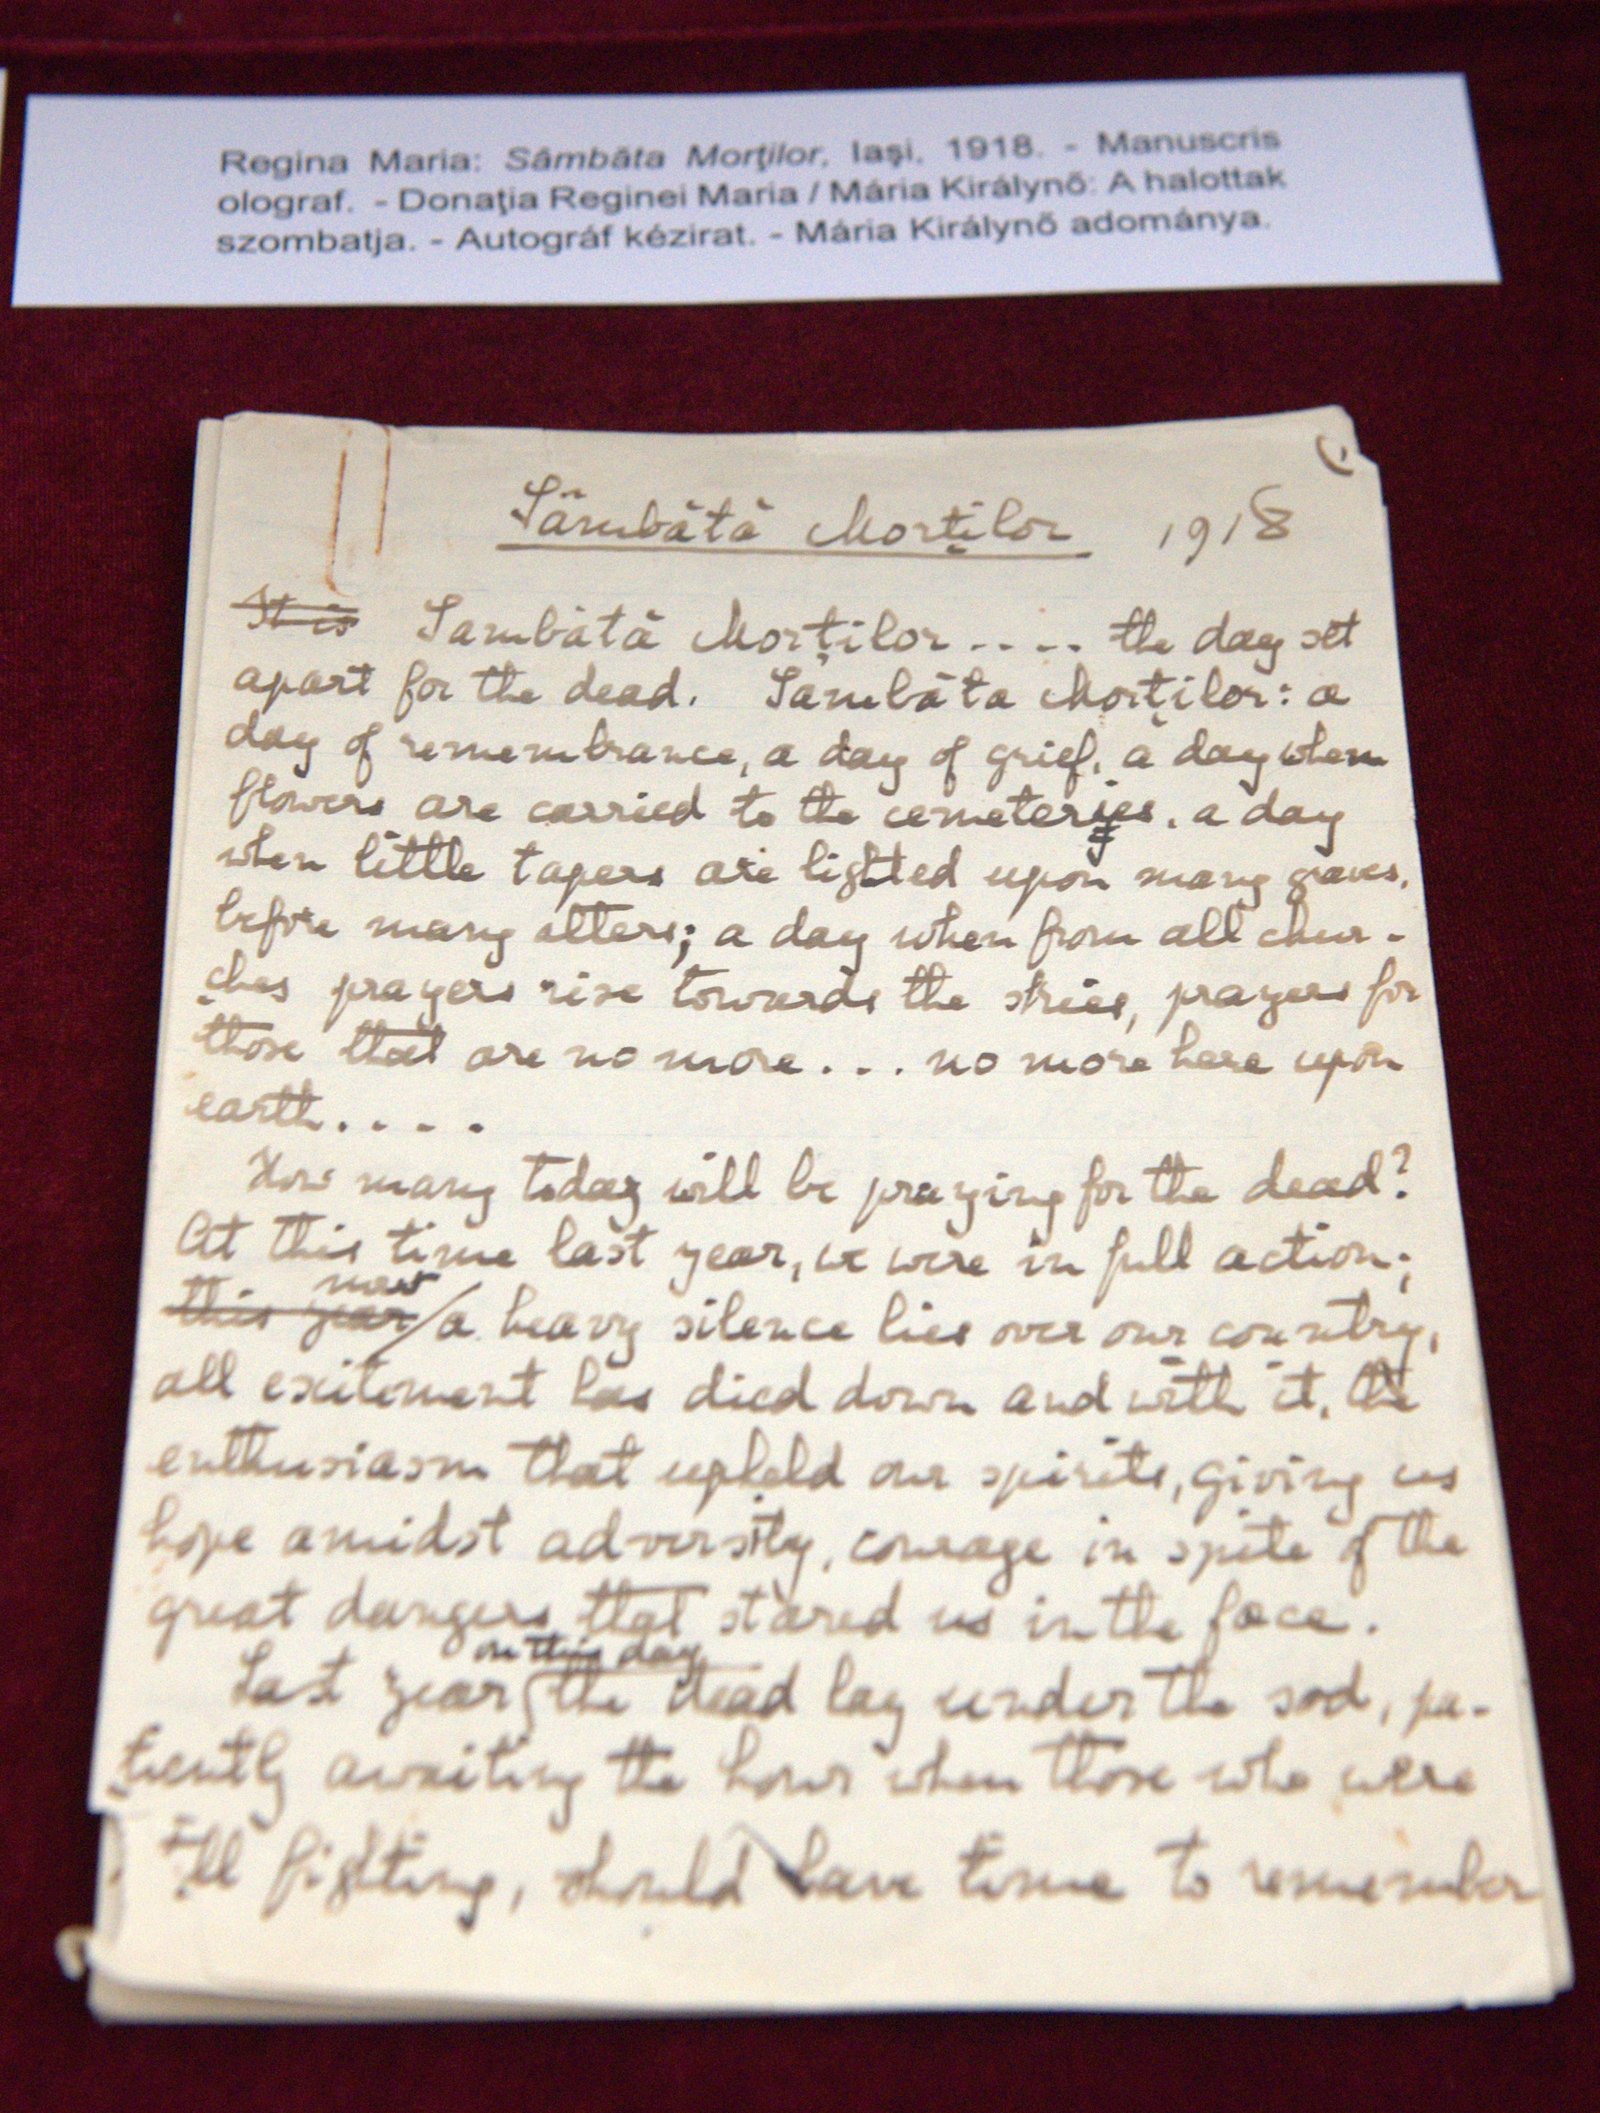 Regina Maria: Sâmbăta Morţilor, Iaşi, 1918. - Manuscris
olograf. - Donaţia Reginei Maria / Mária Királynő: A halottak
szombatja. - Autográf kézirat. - Mária Királynő adománya.
Sâmbătă Morţilor 1918
It is Sambătă Morţilor .... the day set
apart for the dead. Sambăta Morţilor: a
day of remembrance, a day of grief, a day when
flowers are carried to the cemeteries, a day
when little tapers are lighted upon many graves,
before many alters; a day when from all chur-
ches prayers rise towards the skies, prayers for
those that are no more ... no more here upon
earth ....
How many today will be praying for the dead?
At this time last year, we were in full action;
now
this year / a heavy silence lies over our country,
all excitement has died down and with it, the
enthusiasm that upheld our spirits, giving us
hope amidst adversity, courage in spite of the
great dangers that stared us in the face.
on this day
Last year the dead lay under the sod, pa-
tiently awaiting the hour when those who were
fighting, should have time to remember